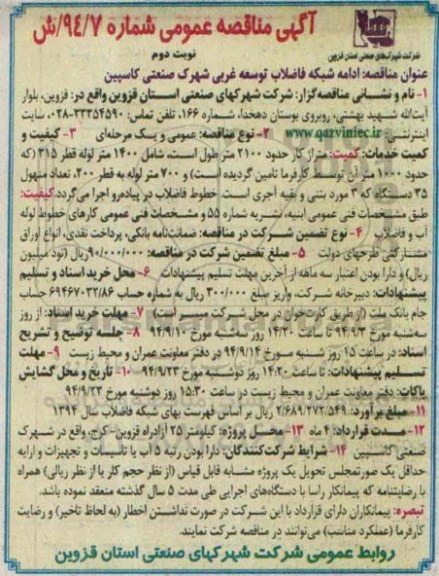 آگهی مناقصه عمومی شماره ۹۴/۷/ش
نوبت دوم
شرکت شهرکهای صنعتی استان قزوین
عنوان مناقصه: ادامه شبکه فاضلاب توسعه غربی شهرک صنعتی کاسپین
۱- نام و نشانی مناقصه‌گزار: شرکت شهرکهای صنعتی استان قزوین واقع در: قزوین، بلوار
آیت‌الله شهید بهشتی، روبروی بوستان دهخدا، شماره ۱۶۶، تلفن تماس: ۳۳۳۵۴۵۹۰-۰۲۸، سایت
اینترنتی www.qazviniec.ir ۲- نوع مناقصه: عمومی و یک مرحله‌ای ۳- کیفیت و
کمیت خدمات: کمیت: متراژ کار حدود ۲۱۰۰ متر طول است، شامل ۱۴۰۰ متر لوله قطر ۳۱۵ (که
حدود ۱۰۰۰ متر آن توسط کارفرما تامین گردیده است) و ۷۰۰ متر لوله به قطر ۲۰۰، تعداد منهول
۳۵ دستگاه که ۳ مورد بتنی و بقیه آجری است. خطوط فاضلاب در پیاده‌رو اجرا می‌گردد کیفیت:
طبق مشخصات فنی عمومی ابنیه، نشریه شماره ۵۵ و مشخصات فنی عمومی کارهای خطوط لوله
آب و فاضلاب ۴- نوع تضمین شرکت در مناقصه: ضمانت‌نامه بانکی، پرداخت نقدی، انواع اوراق
مشارکتی طرحهای دولت ۵- مبلغ تضمین شرکت در مناقصه: ۹۰/۰۰۰/۰۰۰ریال (نود میلیون
ریال) و دارا بودن اعتبار سه ماهه از آخرین مهلت تسلیم پیشنهادات ۶- محل خرید اسناد و تسلیم
پیشنهادات: دبیرخانه شرکت، واریز مبلغ ۳۰۰/۰۰۰ ریال به شماره حساب ۶۹۴۶۷۰۳۲/۸۶ حساب
جام بانک ملت (از طریق کارت‌خوان در محل شرکت میسر است) ۷- مهلت خرید اسناد: از روز
سه‌شنبه مورخ ۹۴/۹/۳ تا ساعت ۱۴:۲۰ روز سه‌شنبه مورخ ۹۴/۹/۱۰ ۸- جلسه توضیح و تشریح
اسناد: در ساعت ۱۵ روز شنبه مورخ ۹۴/۹/۱۴ در دفتر معاونت عمران و محیط زیست ۹- مهلت
تسلیم پیشنهادات: تا ساعت ۱۴:۲۰ روز دوشنبه مورخ ۹۴/۹/۲۳ ۱۰- تاریخ و محل گشایش
پاکات: دفتر معاونت عمران و محیط زیست در ساعت ۱۵:۳۰ روز دوشنبه مورخ ۹۴/۹/۲۳
۱۱- مبلغ برآورد: ۲/۶۸۹/۲۷۲/۵۴۹ ریال بر اساس فهرست بهای شبکه فاضلاب سال ۱۳۹۴
۱۲- مدت قرارداد: ۴ ماه ۱۳- محل پروژه: کیلومتر ۲۵ آزادراه قزوین- کرج، واقع در شهرک
صنعتی کاسپین ۱۴- شرایط شرکت‌کنندگان: دارا بودن رتبه ۵ آب یا تاسیسات و تجهیزات و ارایه
حداقل یک صورتمجلس تحویل یک پروژه مشابه قابل قیاس (از نظر حجم کار یا از نظر ریالی) همراه
با رضایتنامه که پیمانکار راسا با دستگاه‌های اجرایی طی مدت ۵ سال گذشته منعقد نموده باشد.
تبصره: پیمانکاران دارای قرارداد با این شرکت در صورت نداشتن اخطار (به لحاظ تاخیر) و رضایت
کارفرما (عملکرد مناسب) می‌توانند در مناقصه شرکت نمایند.
روابط عمومی شرکت شهرکهای صنعتی استان قزوین